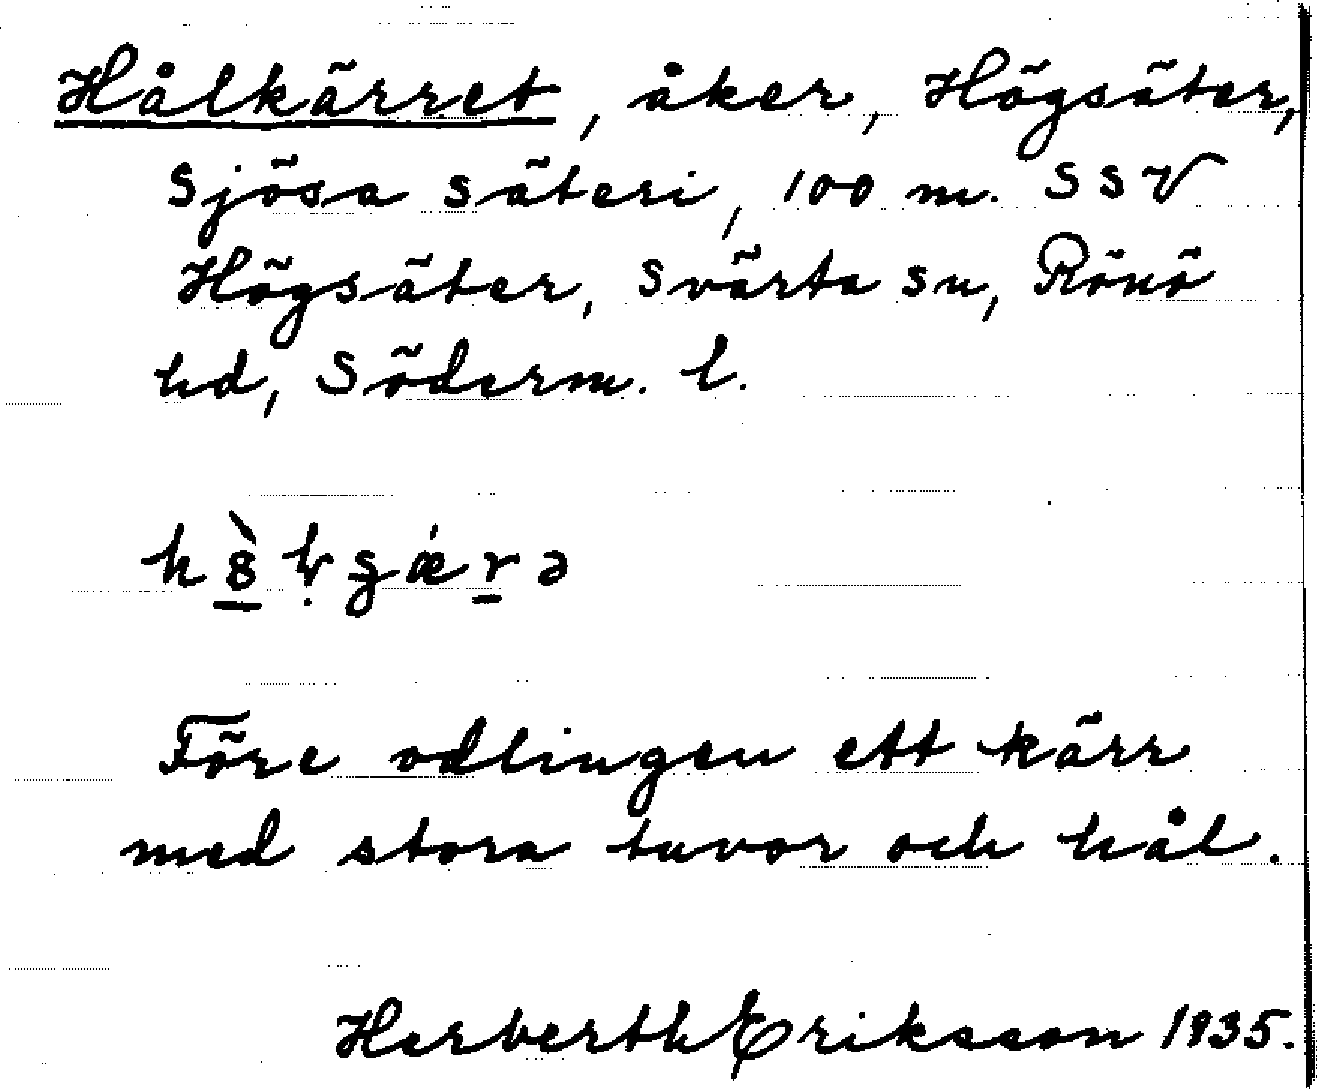 Hålkärret, åker, Högsäter,
Sjösa säteri, 100 m. SSV
Högsäter, Svärta sn, Rönö
hd, Söderm. l.
Före odlingen ett kärr
med stora tuvor och hål.
Herberth Eriksson 1935.